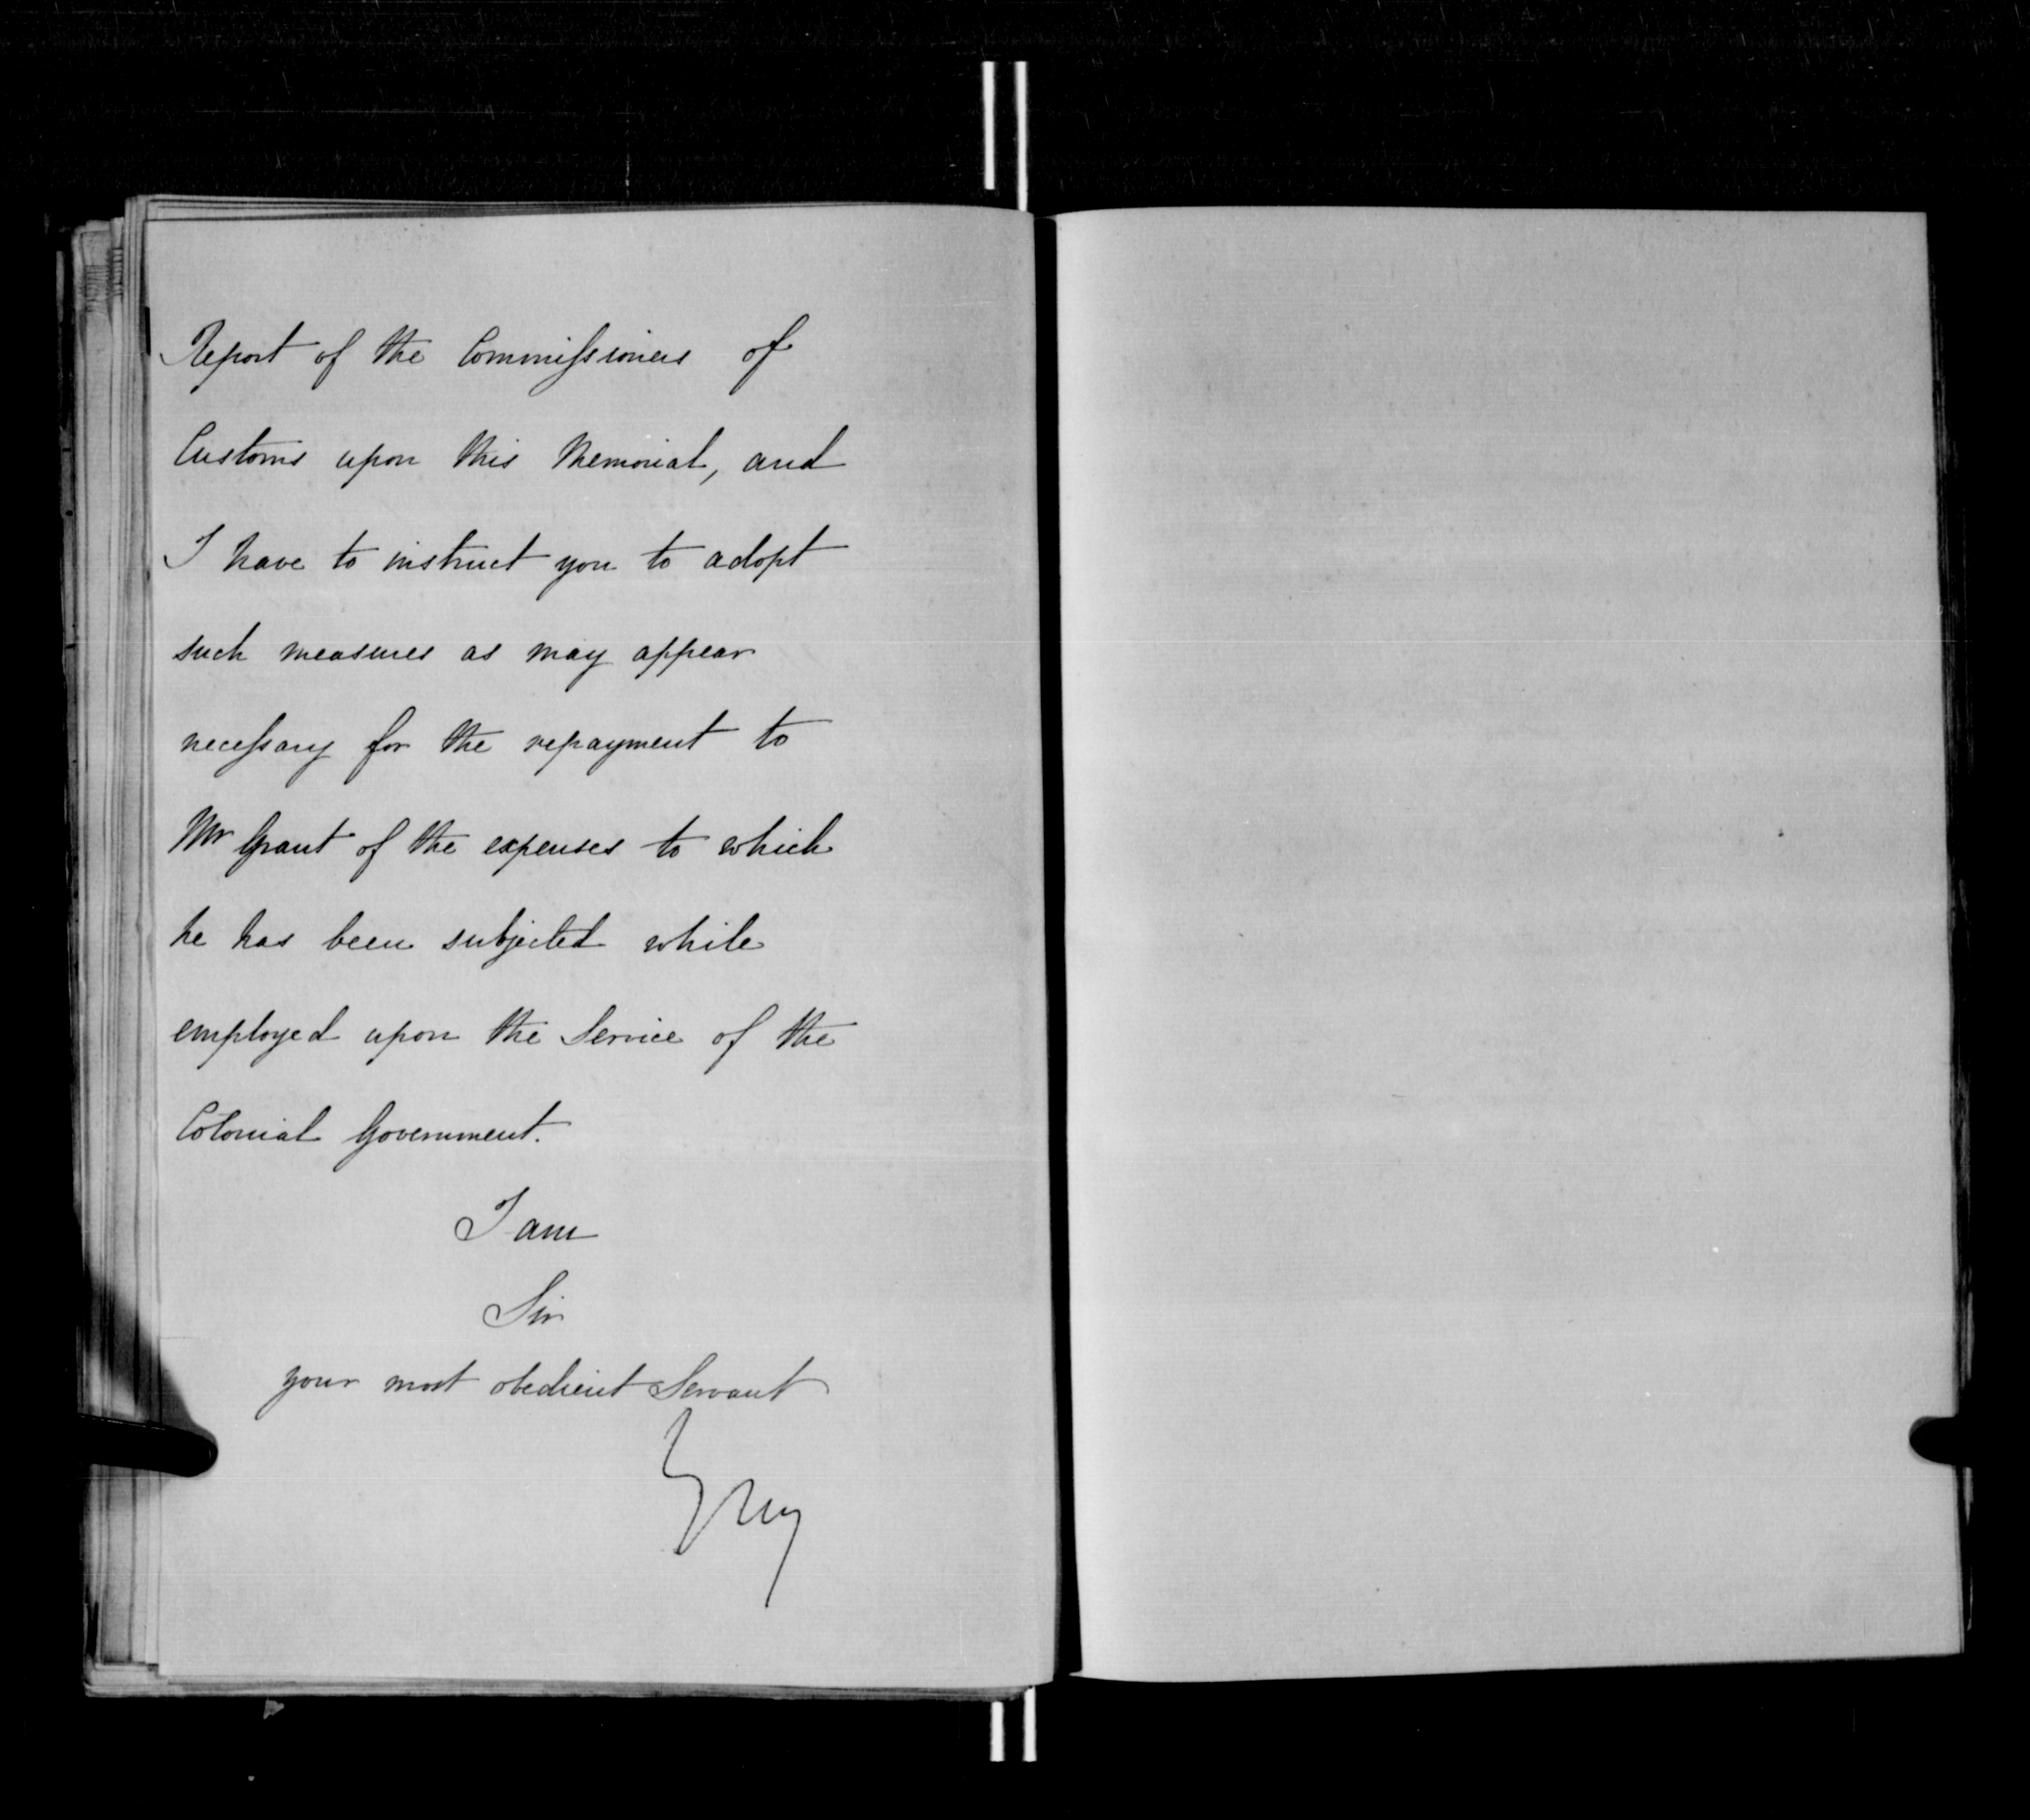 Report of the Commissioners of
Customs upon this Memorial, and
I have to instruct you to adopt
such measures as may appear
necessary for the repayment to
Mr Grant of the expenses to which
he has been subjected while
employed upon the Service of the
Colonial Government.
I am
Sir
your most obedient Servant
Grey